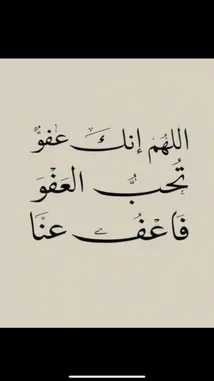 اللهم إنك عفوٌّ
تُحبُّ العَفْوَ
فَاعْفُ عنَّا